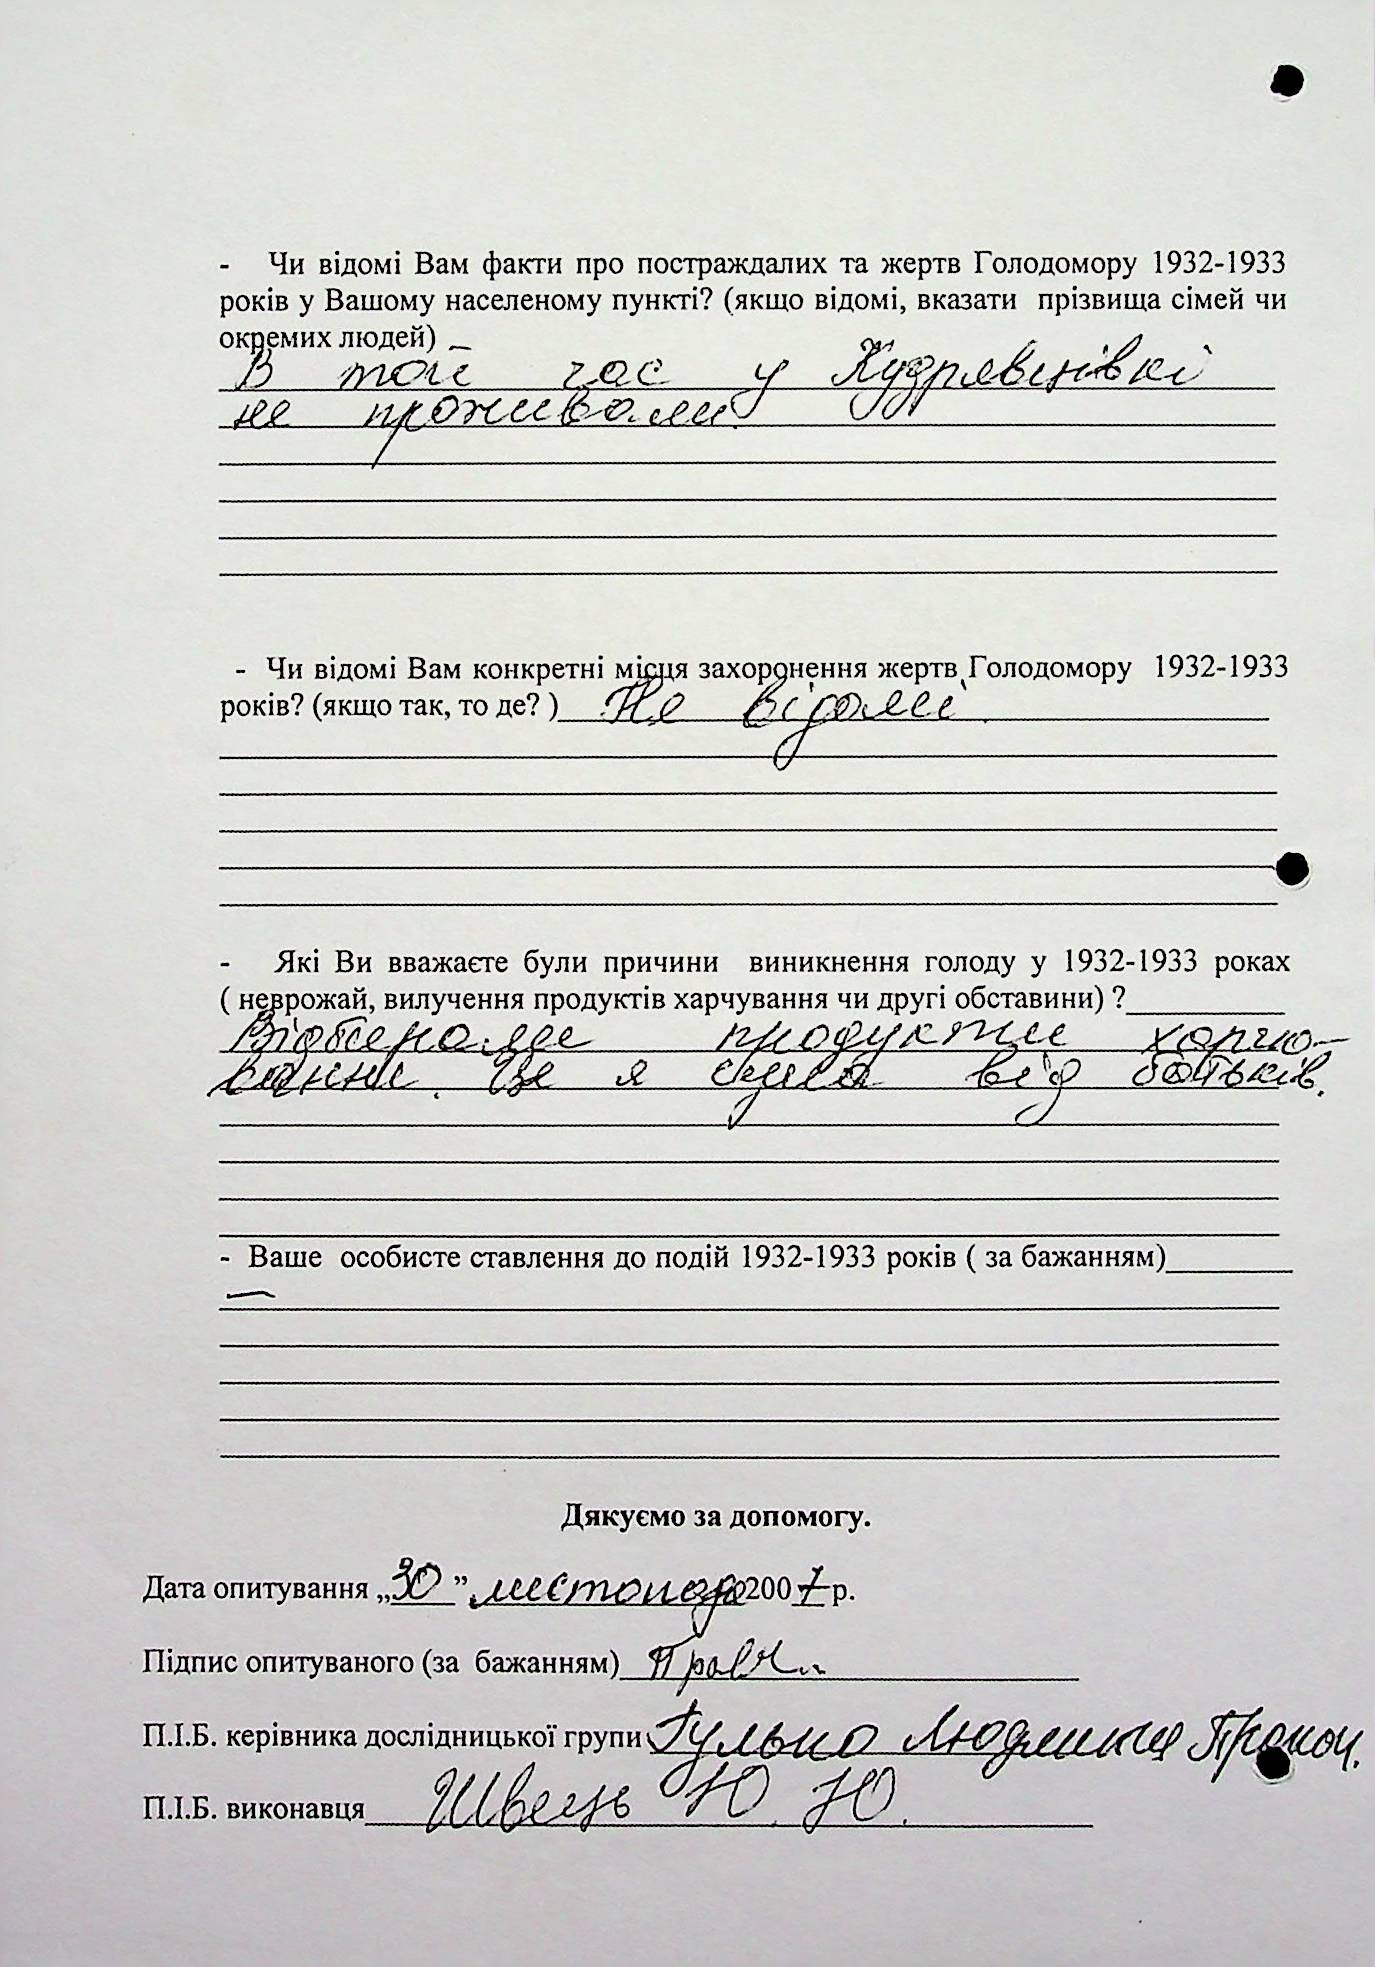 - Чи відомі Вам факти про постраждалих та жертв Голодомору 1932-1933
років у Вашому населеному пункті? (якщо відомі, вказати прізвища сімей чи
окремих людей) –
В той час у Кудрявцівкі
не проживали.
- Чи відомі Вам конкретні місця захоронення жертв Голодомору 1932-1933
років? (якщо так, то де? ) Не відомі.
- Які Ви вважаєте були причини виникнення голоду у 1932-1933 роках
( неврожай, вилучення продуктів харчування чи другі обставини) ?
Відбирали продукти харчо-
вання. Це я чула від батьків.
- Ваше особисте ставлення до подій 1932-1933 років ( за бажанням)
–
Дякуємо за допомогу.
Дата опитування „30” листопада 2007 р.
Підпис опитуваного (за бажанням)
П.І.Б. керівника дослідницької групи Гулько Людмила Прокоп.
П.І.Б. виконавця Швець Ю. Ю.